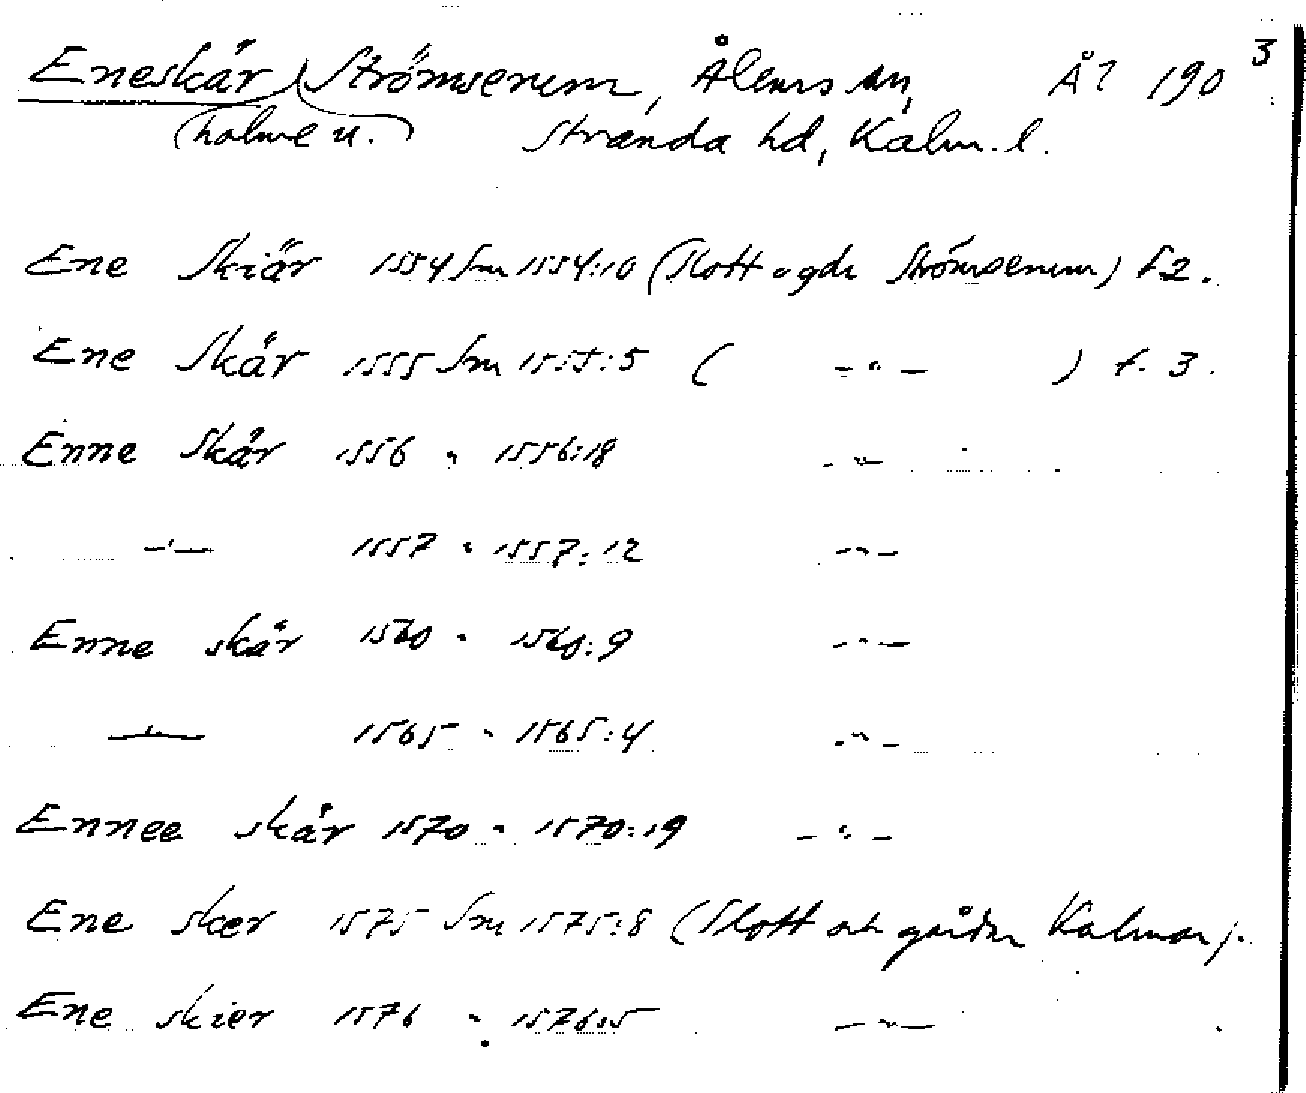 Eneskär Strömserum, Ålems sn, Ål 190 3
(holme u. ) Stranda hd, Kalm. l.
Ene Skiär 1554 Sm 1554:10 (Slott o gdr Strömserum) f 2.
Ene Skär 1555 Sm 1555:5 ( -"- ) f. 3.
Enne Skär 1556 " 1556:18 -"-
-"- 1557 " 1557:12 -"-
Enne skär 1560 " 1560:9 -"-
-"- 1565 " 1565:4 -"-
Ennee skär 1570 " 1570:19 -"-
Ene sker 1575 Sm 1575:8 (Slott och gårdar Kalmar).
Ene skier 1576 " 1576:5 -"-